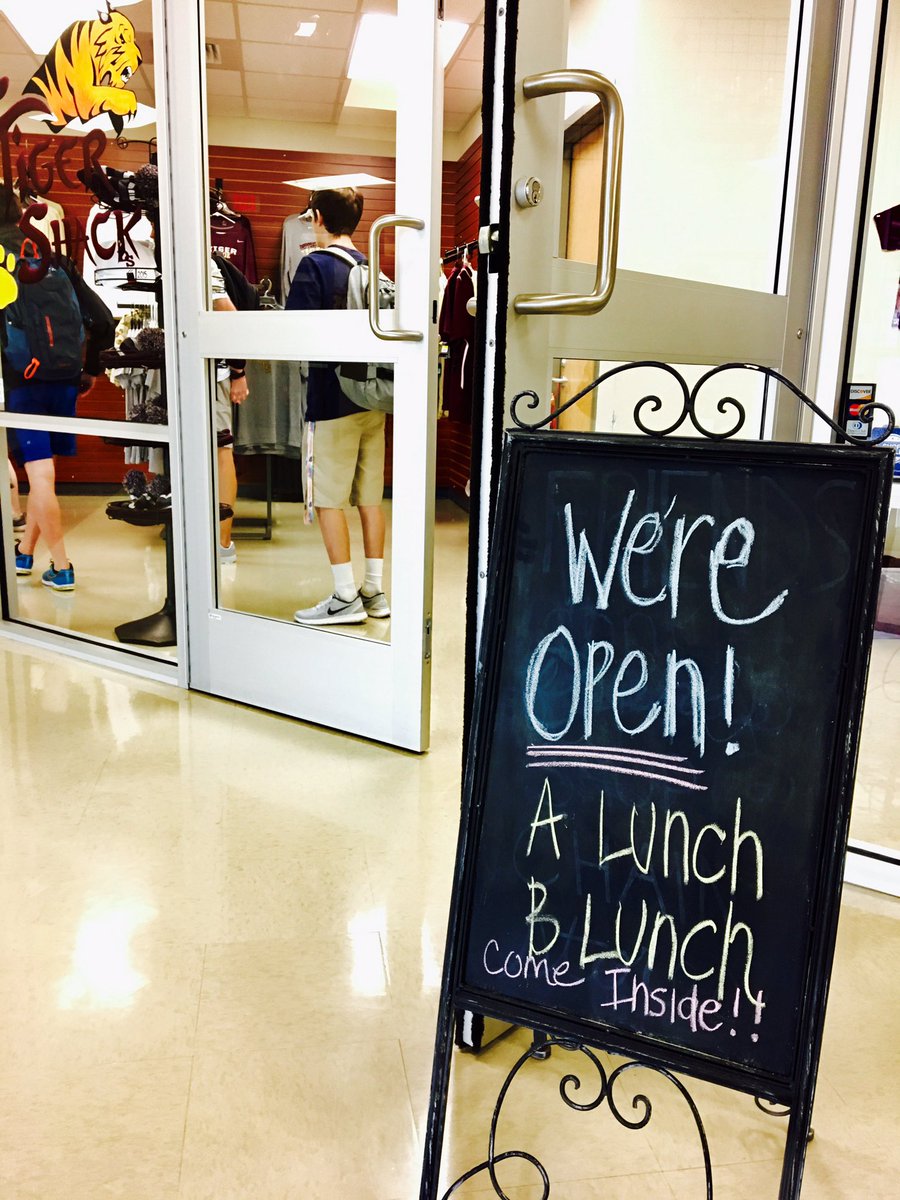 Tiger
Shack
TIGER
DISCOVER
We're
Open!
A Lunch
B Lunch
Come Inside!!